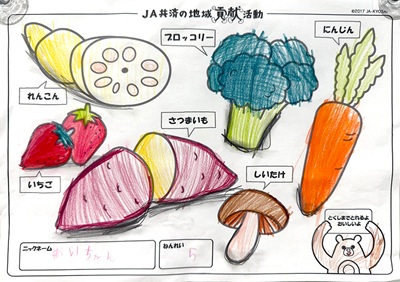 JA共済の地域貢献活動
©2017 JA-KYOSAI
ブロッコリー
にんじん
れんこん
さつまいも
いちご
しいたけ
とくしまでとれるよ
おいしいよ
ニックネーム
ねんれい
5